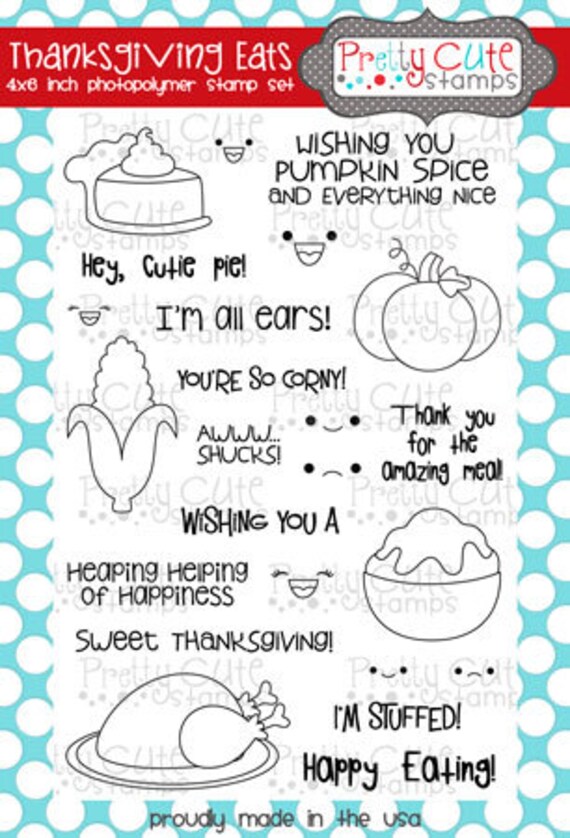 Thanksgiving Eats
4x6 inch photopolymer stamp set
Pretty Cute
stamps
Wishing you
pumpkin spice
and everything nice
Hey, cutie pie!
I'm all ears!
You're so corny!
Awww...
shucks!
Thank you
for the
amazing meal!
Wishing you a
Heaping helping
of happiness
Sweet Thanksgiving!
I'm stuffed!
Happy Eating!
proudly made in the usa